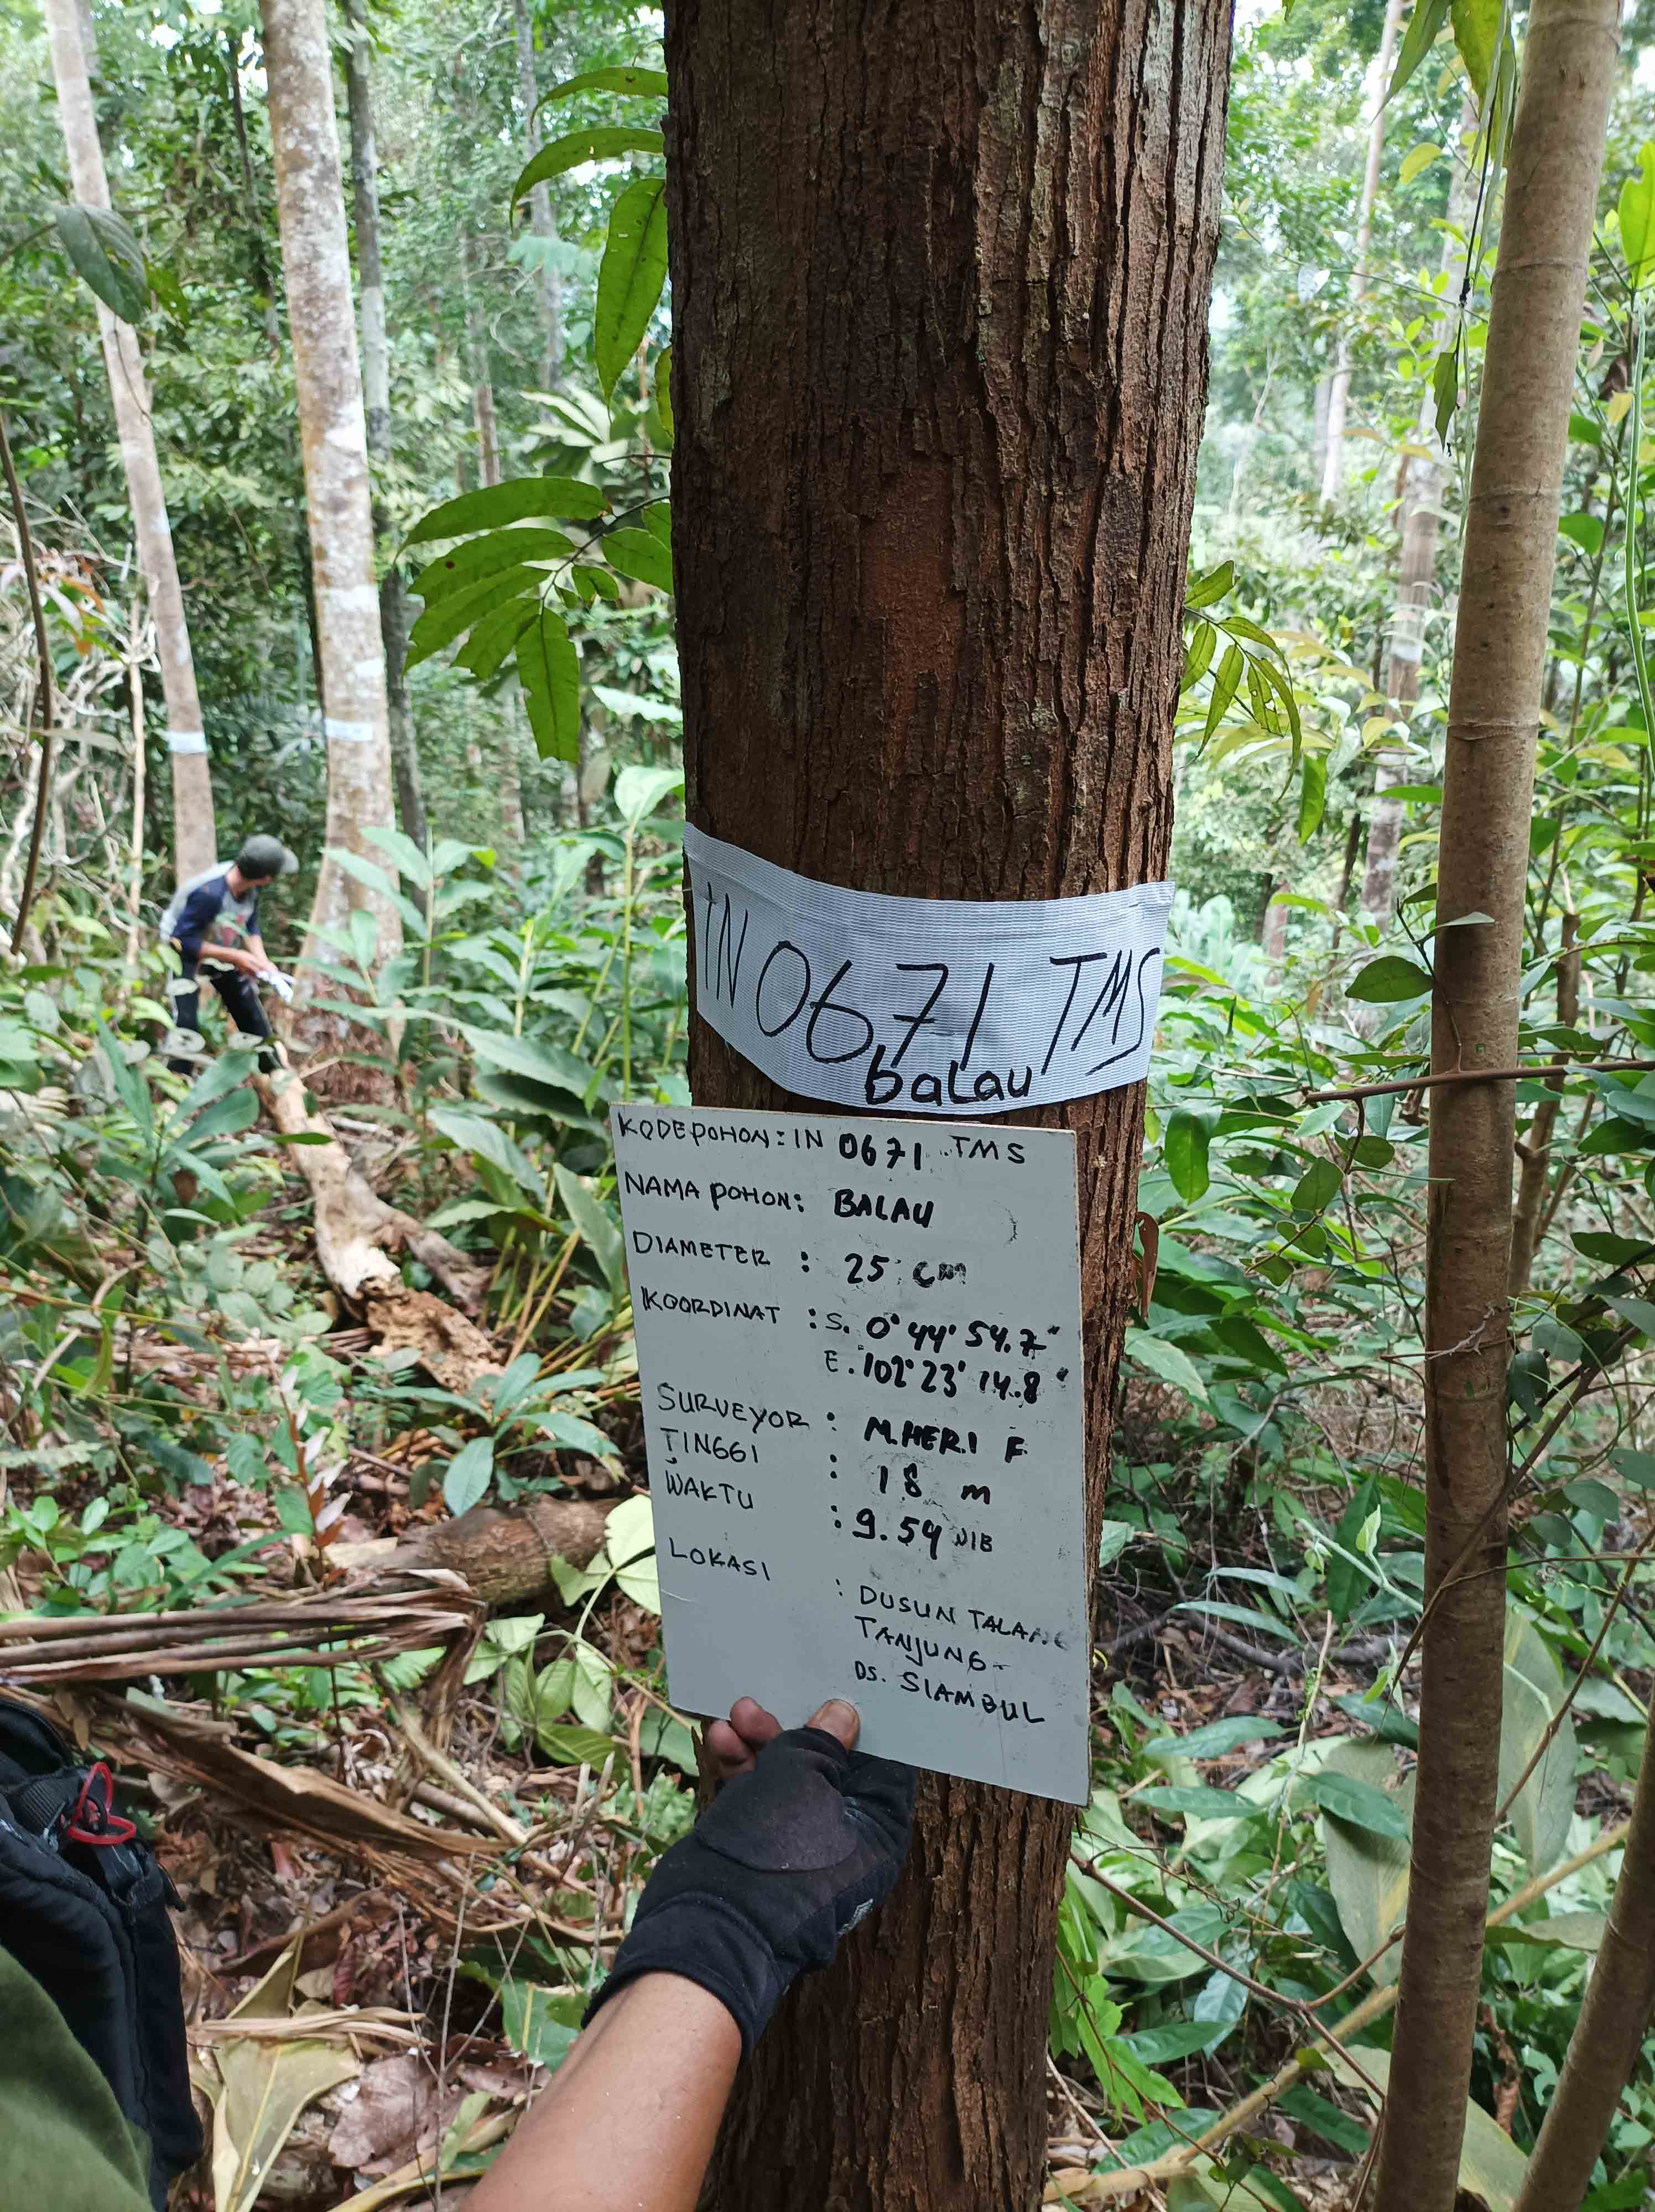 IN 0671 TMS
baLau
KODE POHON : IN 0671 TMS
NAMA POHON : BALAU
DIAMETER : 25 cm
KOORDINAT : S. 0° 44' 54.7"
E. 102° 23' 14.8"
SURVEYOR : M.HERI F
TINGGI : 18 m
WAKTU : 9.59 WIB
LOKASI : DUSUN TALANG
TANJUNG-
DS. SIAMBUL